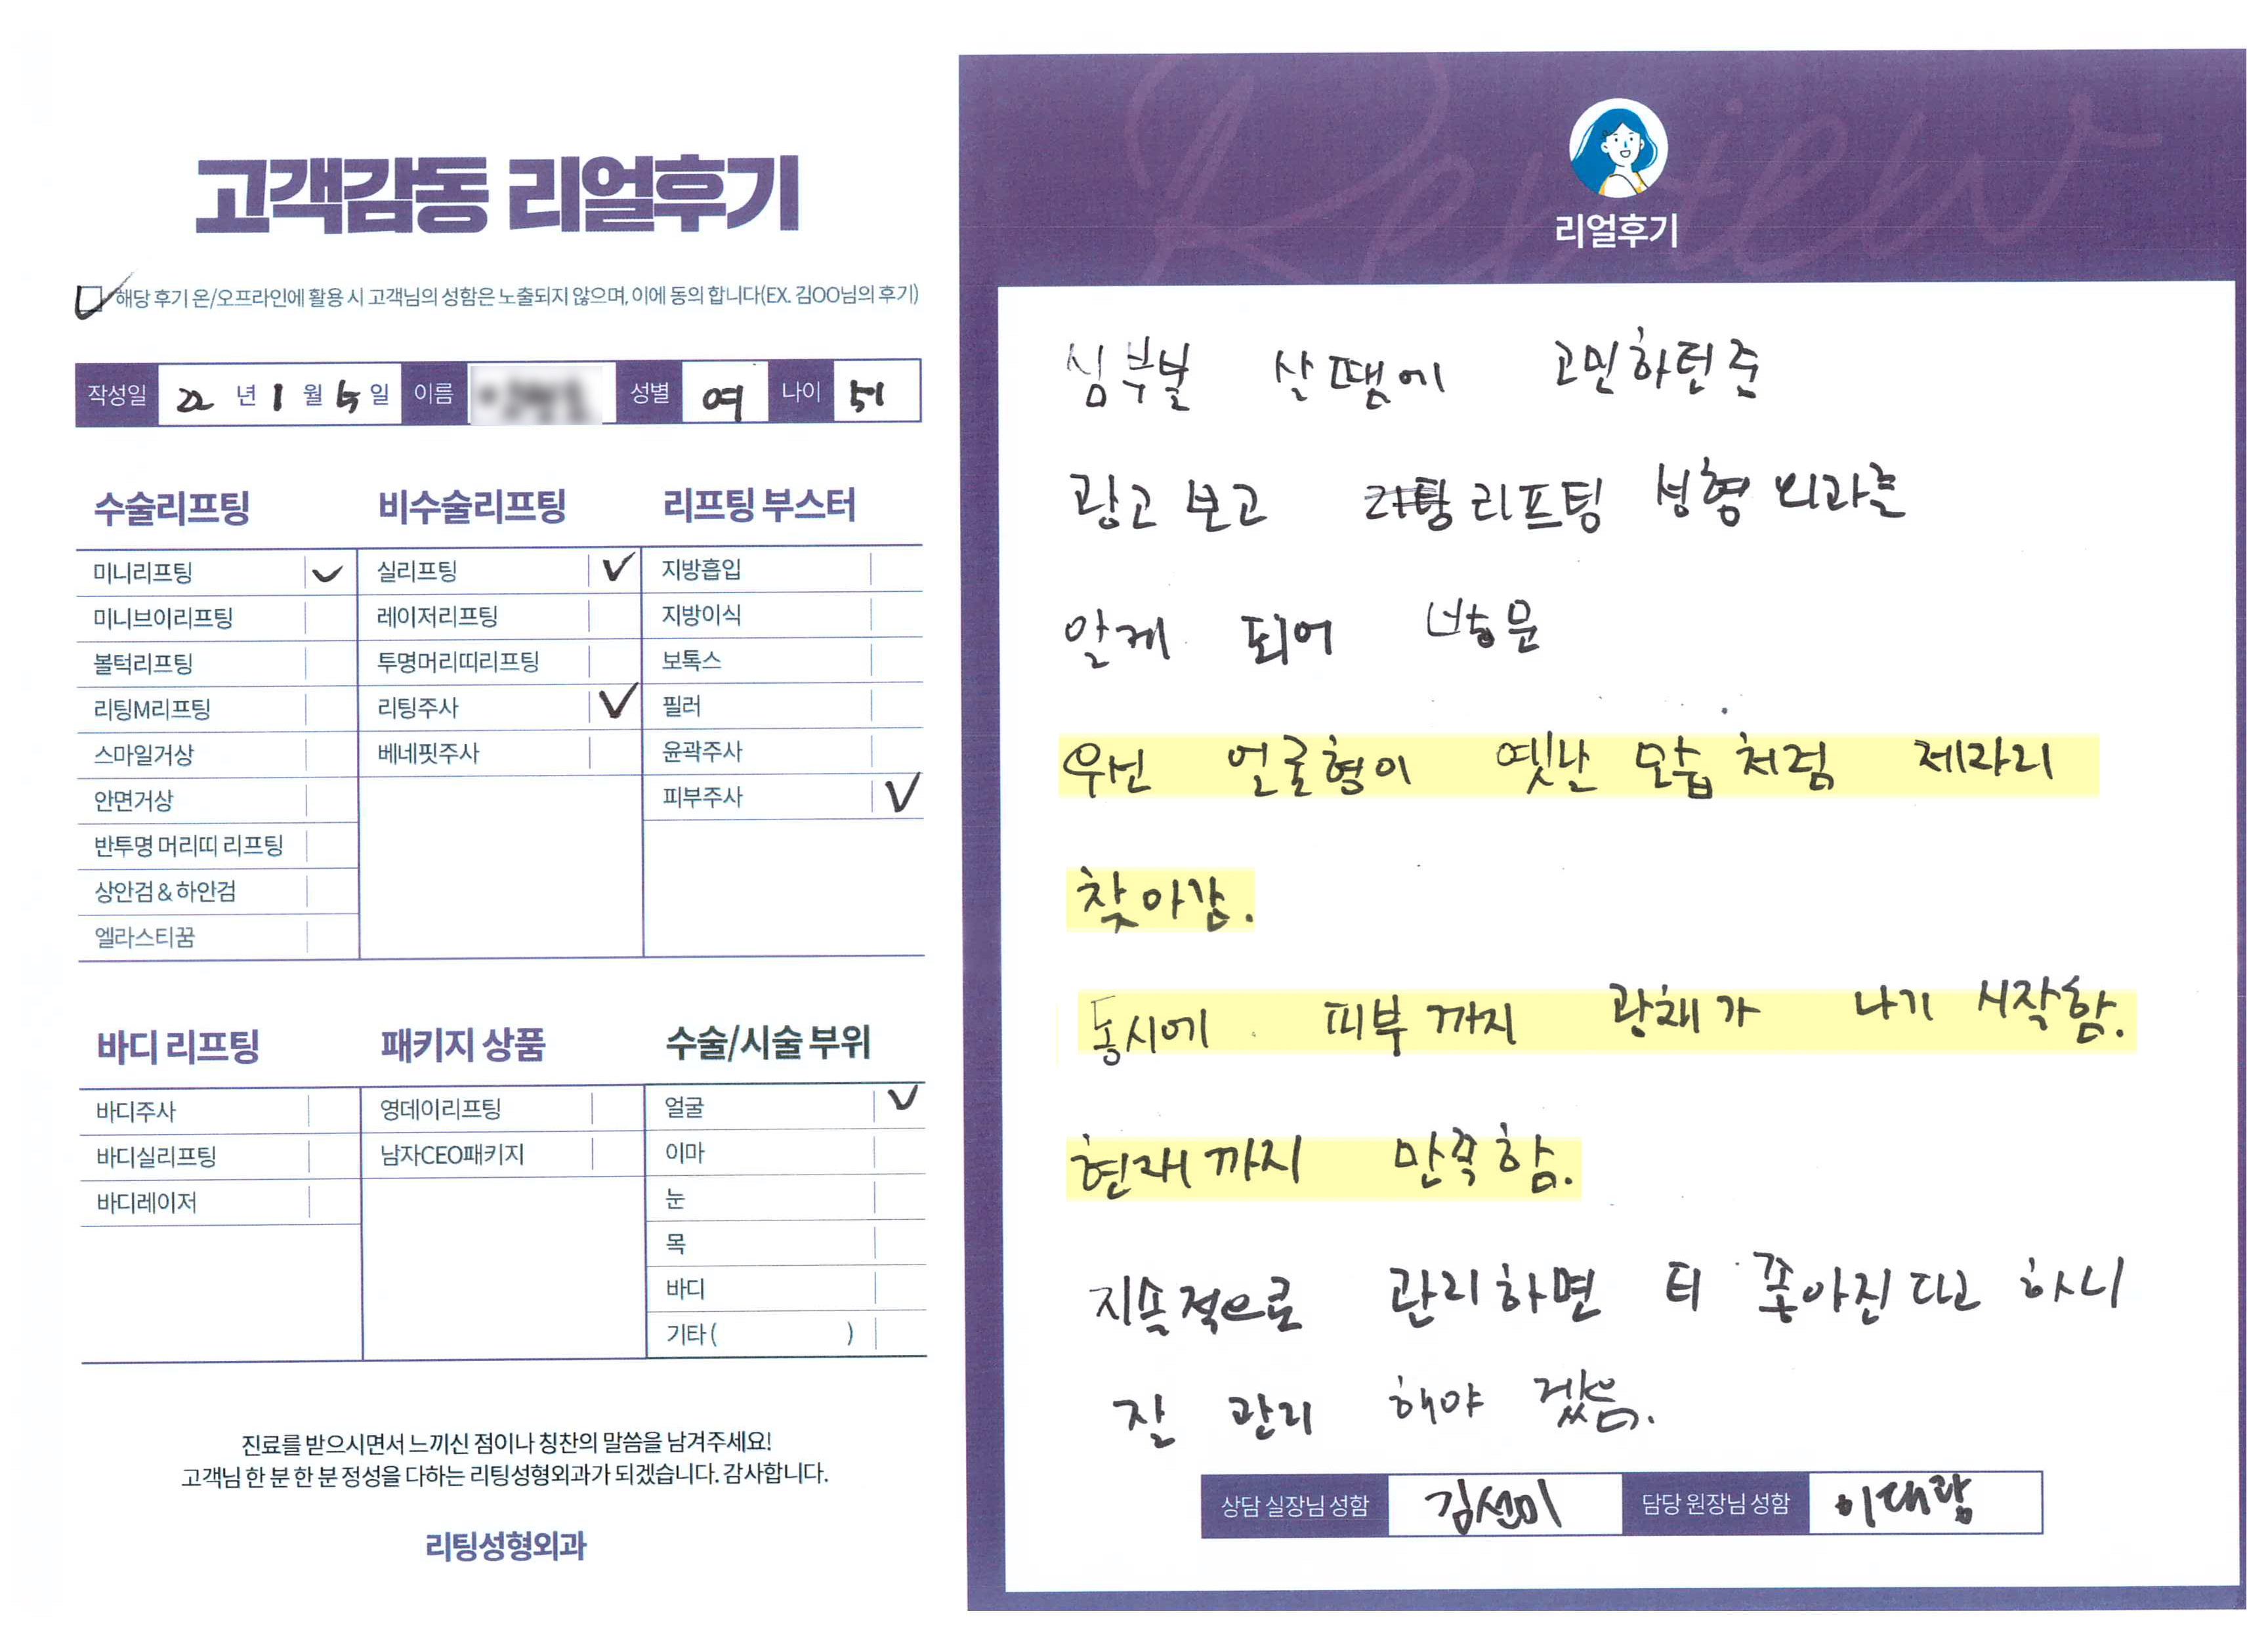 고객감동 리얼후기
해당 후기 온/오프라인에 활용 시 고객님의 성함은 노출되지 않으며, 이에 동의 합니다(EX. 김OO님의 후기)
작성일 22 년 1 월 5 일 이름 성별 여 나이 51
수술리프팅
미니리프팅
미니브이리프팅
볼턱리프팅
리팅M리프팅
스마일거상
안면거상
반투명 머리띠 리프팅
상안검 & 하안검
엘라스티꿈
비수술리프팅
실리프팅
레이저리프팅
투명머리띠리프팅
리팅주사
베네핏주사
리프팅 부스터
지방흡입
지방이식
보톡스
필러
윤곽주사
피부주사
바디 리프팅
바디주사
바디실리프팅
바디레이저
패키지 상품
영데이리프팅
남자CEO패키지
수술/시술 부위
얼굴
이마
눈
목
바디
기타 ( )
진료를 받으시면서 느끼신 점이나 칭찬의 말씀을 남겨주세요!
고객님 한 분 한 분 정성을 다하는 리팅성형외과가 되겠습니다. 감사합니다.
리팅성형외과
Review
리얼후기
심부볼 살땜에 고민하던중
광고 보고 리프팅 성형외과를
알게 되어 방문
우선 얼굴형이 옛날 모습처럼 제자리
찾아감.
동시에 피부까지 광채가 나기 시작함.
현재까지 만족함.
지속적으로 관리하면 더 좋아진다고 하니
잘 관리 해야 겠음.
상담 실장님 성함 김선미 담당 원장님 성함 이대람